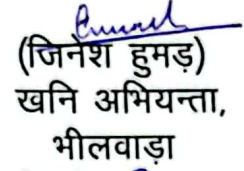 (जिनेश हुमड़)
खनि अभियन्ता,
भीलवाड़ा